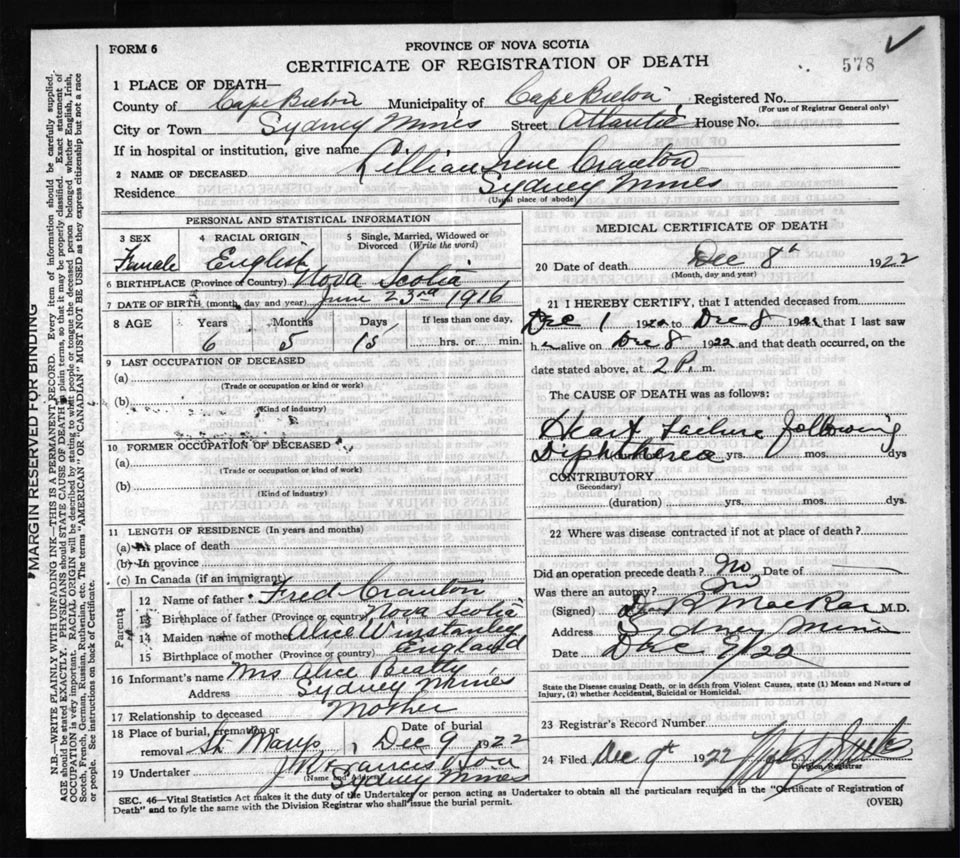 FORM 6
PROVINCE OF NOVA SCOTIA
CERTIFICATE OF REGISTRATION OF DEATH
578
1 PLACE OF DEATH—
County of Cape Breton Municipality of Cape Breton Registered No.
(For use of Registrar General only)
City or Town Sydney Mines Street Atlantic House No.
If in hospital or institution, give name
2 NAME OF DECEASED Lillian Irene Cranton
Residence Sydney Mines
(Usual place of abode)
PERSONAL AND STATISTICAL INFORMATION
3 SEX 4 RACIAL ORIGIN 5 Single, Married, Widowed or Divorced (Write the word)
Female English
6 BIRTHPLACE (Province or Country) Nova Scotia
7 DATE OF BIRTH (month, day and year) June 23rd 1916
8 AGE Years Months Days If less than one day,
6 5 15 hrs. or min.
9 LAST OCCUPATION OF DECEASED
(a)
(Trade or occupation or kind or work)
(b)
(Kind of industry)
10 FORMER OCCUPATION OF DECEASED
(a)
(Trade or occupation or kind of work)
(b)
(Kind of industry)
11 LENGTH OF RESIDENCE (In years and months)
(a) At place of death
(b) In province
(c) In Canada (if an immigrant)
Parents
12 Name of father Fred Cranton
13 Birthplace of father (Province or country) Nova Scotia
14 Maiden name of mother Alice Winstanley
15 Birthplace of mother (Province or country) England
16 Informant's name Mrs Alice Beatty
Address Sydney Mines
17 Relationship to deceased Mother
18 Place of burial, cremation or removal St Marys Date of burial Dec 9 1922
19 Undertaker
(Name and Address)
Sydney Mines
MEDICAL CERTIFICATE OF DEATH
20 Date of death Dec 8th 1922
(Month, day and year)
21 I HEREBY CERTIFY, that I attended deceased from
Dec 1 1922 to Dec 8 1922 that I last saw
h alive on Dec 8 1922 and that death occurred, on the
date stated above, at 2 P. m.
The CAUSE OF DEATH was as follows:
Heart failure following
Diphtherea yrs. mos. dys
CONTRIBUTORY
(Secondary)
(duration) yrs. mos. dys.
22 Where was disease contracted if not at place of death?
Did an operation precede death? No Date of
Was there an autopsy? No
(Signed) M.D.
Address Sydney Mines
Date Dec 9/22
State the Disease causing Death, or in death from Violent Causes, state (1) Means and Nature of
Injury, (2) whether Accidental, Suicidal or Homicidal.
23 Registrar's Record Number
24 Filed Dec 9th 1922
Division Registrar
SEC. 46—Vital Statistics Act makes it the duty of the Undertaker or person acting as Undertaker to obtain all the particulars required in the "Certificate of Registration of
Death" and to fyle the same with the Division Registrar who shall issue the burial permit.
(OVER)
MARGIN RESERVED FOR BINDING
N.B.—WRITE PLAINLY WITH UNFADING INK—THIS IS A PERMANENT RECORD. Every item of information should be carefully supplied.
AGE should be stated EXACTLY. PHYSICIANS should STATE CAUSE OF DEATH in plain terms, so that it may be properly classified. Exact statement of
OCCUPATION is very important. RACIAL ORIGIN will be described by stating to what people or tongue the deceased person belonged whether English, Irish,
Scotch, French, German, Russian, Ruthenian, etc. The terms "AMERICAN" or "CANADIAN" MUST NOT BE USED as they express citizenship but not a race
or people. See instructions on back of Certificate.